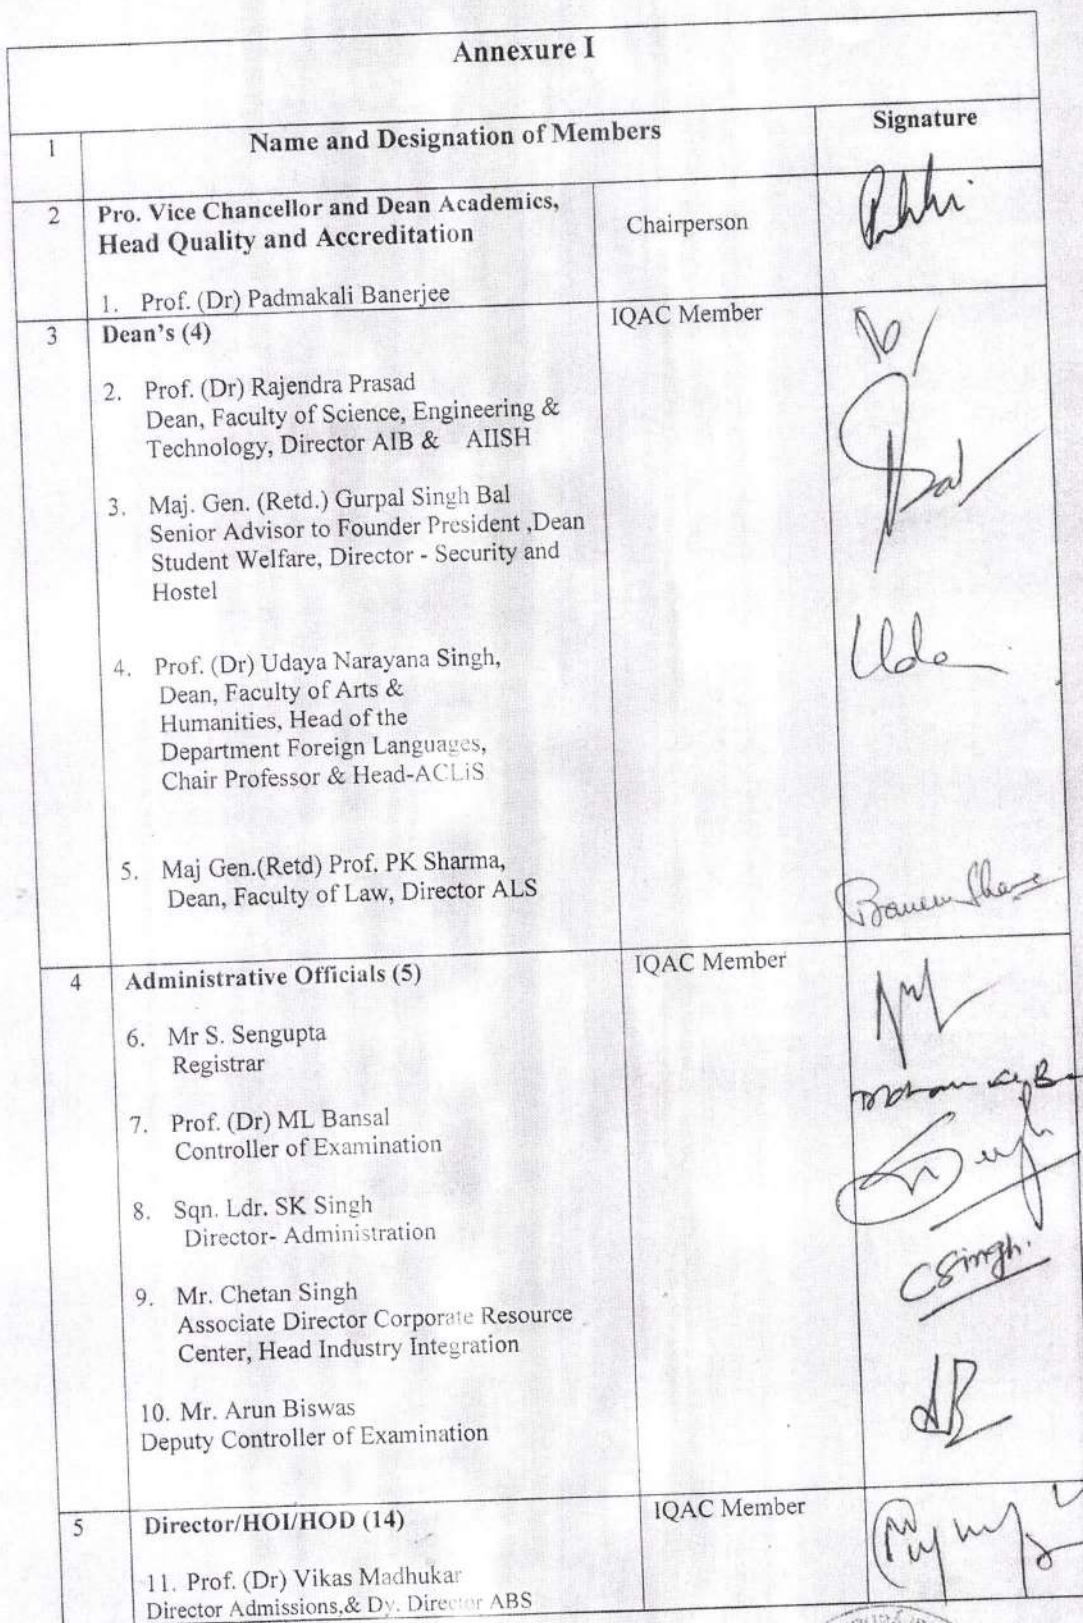 Annexure I
1 Name and Designation of Members Signature
2 Pro. Vice Chancellor and Dean Academics, Chairperson
Head Quality and Accreditation
1. Prof. (Dr) Padmakali Banerjee
3 Dean's (4) IQAC Member
2. Prof. (Dr) Rajendra Prasad
Dean, Faculty of Science, Engineering &
Technology, Director AIB & AIISH
3. Maj. Gen. (Retd.) Gurpal Singh Bal
Senior Advisor to Founder President ,Dean
Student Welfare, Director - Security and
Hostel
Bal
4. Prof. (Dr) Udaya Narayana Singh,
Dean, Faculty of Arts &
Humanities, Head of the
Department Foreign Languages,
Chair Professor & Head-ACLiS
5. Maj Gen.(Retd) Prof. PK Sharma,
Dean, Faculty of Law, Director ALS
4 Administrative Officials (5) IQAC Member
6. Mr S. Sengupta
Registrar
7. Prof. (Dr) ML Bansal
Controller of Examination
8. Sqn. Ldr. SK Singh
Director- Administration
9. Mr. Chetan Singh
Associate Director Corporate Resource
Center, Head Industry Integration
CSingh.
10. Mr. Arun Biswas
Deputy Controller of Examination
AB
5 Director/HOI/HOD (14) IQAC Member
11. Prof. (Dr) Vikas Madhukar
Director Admissions,& Dy. Director ABS